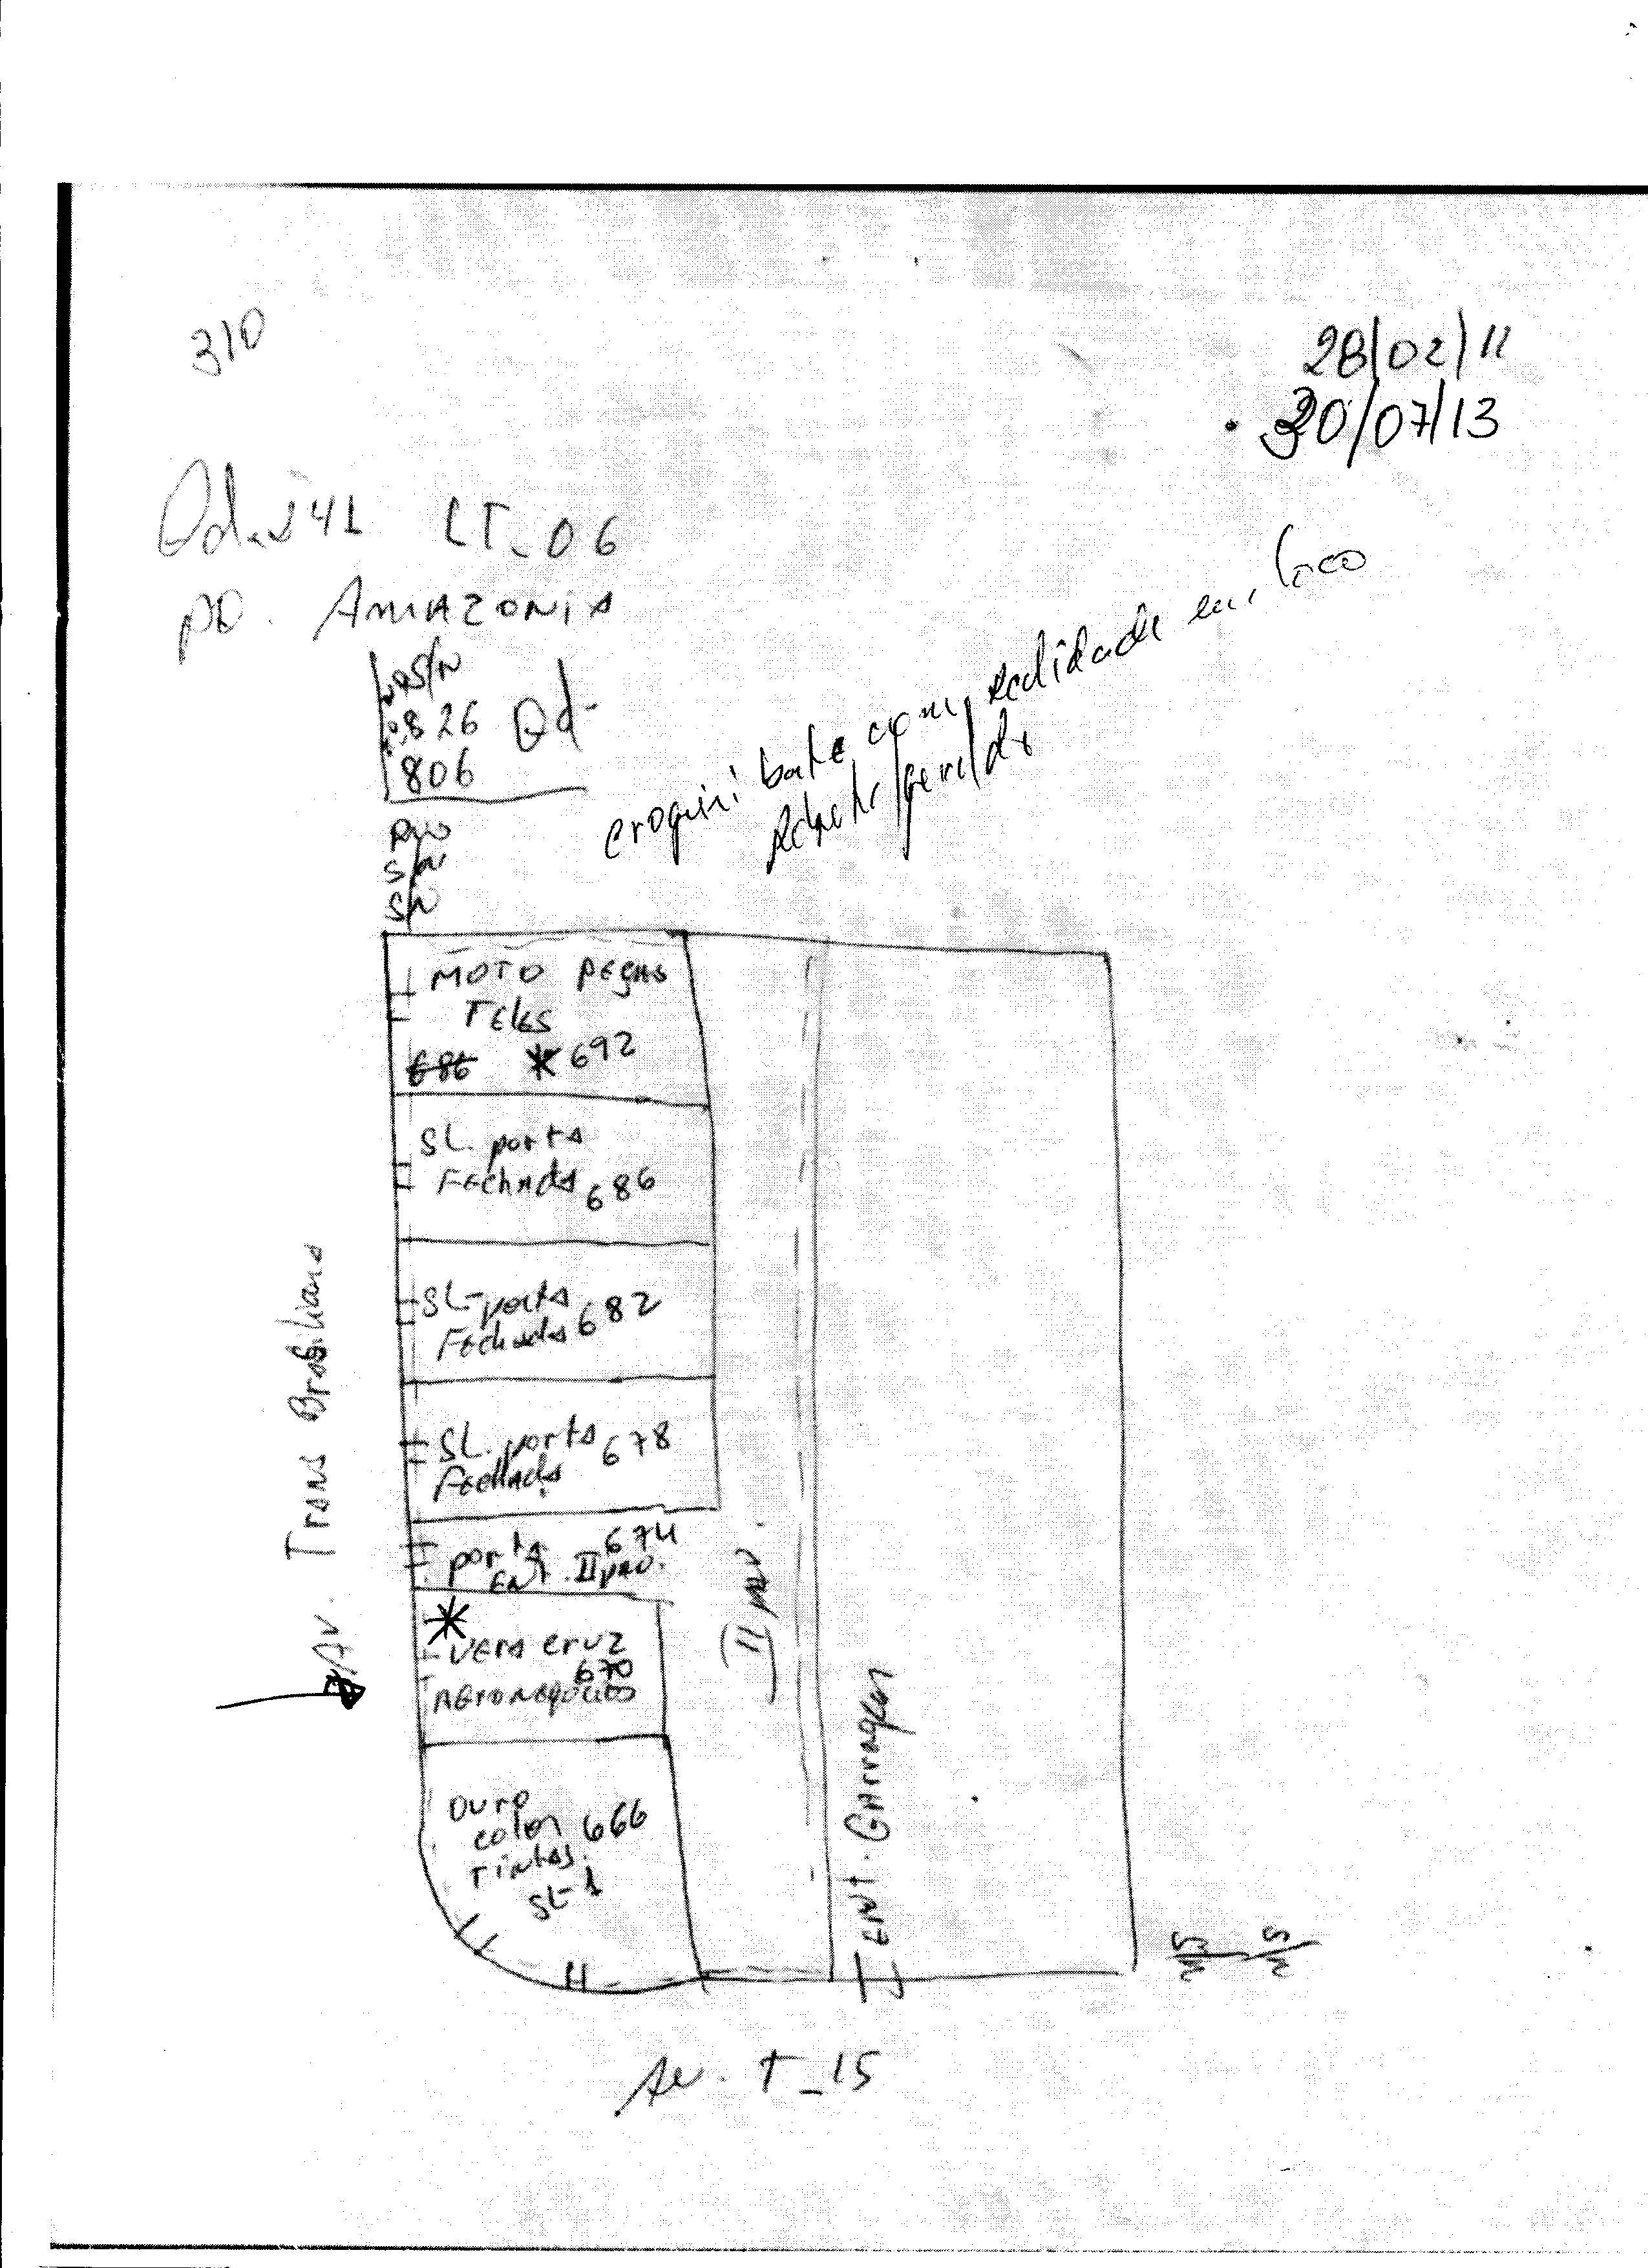 310
28/02/11
30/07/13
Qd. 241 LT-06
PQ. AMAZONIA
S/N
826 Qd-
806
S/N
SN
croqui bate com realidade em loco
MOTO PEÇAS
TELES
686 * 692
SL. porta
FEchada 686
SL-porta 682
FEchada
SL. porta 678
FEchada
porta 674
ENT. II PAV.
*
VERA CRUZ
670
AGRONEGOCIOS
OURO
color 666
TINTAS.
SL-1
II PAV.
ENT. GArragem
AV. TRANS BrasiliANA
Av. T-15